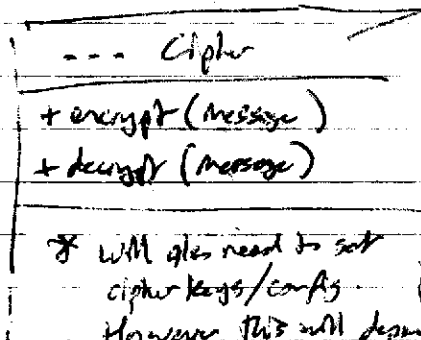 --- Cipher
+ encrypt (message)
+ decrypt (message)
* will also need to set
cipher keys/config.
However this will depen